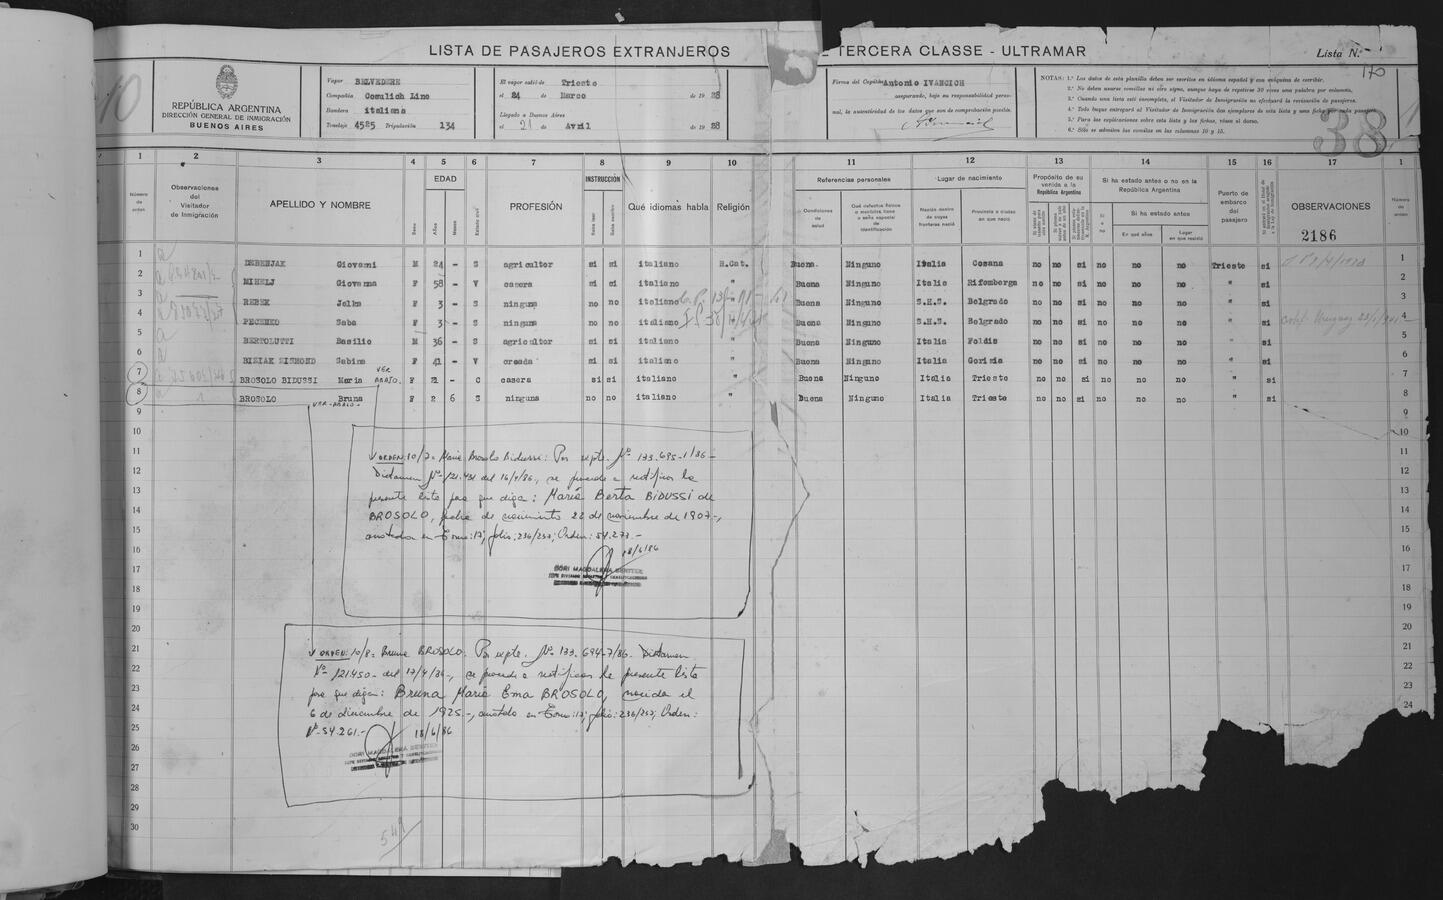 LISTA DE PASAJEROS EXTRANJEROS DE TERCERA CLASSE - ULTRAMAR
Lista N.º
170
REPÚBLICA ARGENTINA
DIRECCIÓN GENERAL DE INMIGRACIÓN
BUENOS AIRES
Vapor BELVEDERE
Compañía Cosulich Line
Bandera italiana
Tonelaje 4525 Tripulación 134
El vapor salió de Trieste
el 24 de Marzo de 1928
Llegado a Buenos Aires
el 21 de Avril de 1928
Firma del Capitán Antonio IVANCICH
asegurando, bajo su responsabilidad personal, la autenticidad de los datos que son de comprobación posible.
NOTAS: 1.ª Los datos de esta planilla deben ser escritos en idioma español y con máquina de escribir.
3.ª Cuando una lista esté incompleta, el Visitador de Inmigración no efectuará la revisación de pasajeros.
5.ª Para las explicaciones sobre esta lista y las fichas, véase al dorso.
6.ª Sólo se admiten las comillas en las columnas 10 y 15.
38
1 2 3 4 5 6 7 8 9 10 11 12 13 14 15 16 17 1
Número de orden
Observaciones del Visitador de Inmigración
APELLIDO Y NOMBRE
Sexo
EDAD
Años
Meses
Estado civil
PROFESIÓN
INSTRUCCIÓN
Sabe leer
Sabe escribir
Qué idiomas habla
Religión
Referencias personales
Condiciones de salud
Qué defectos físicos o mentales tiene o seña especial de identificación
Lugar de nacimiento
Nación dentro de cuyas fronteras nació
Provincia o ciudad en que nació
Propósito de su venida a la República Argentina
Si ha estado antes o no en la República Argentina
Si o no
Si ha estado antes
En qué años
Lugar en que residió
Puerto de embarco del pasajero
OBSERVACIONES
2186
Número de orden
1 DEBENJAK Giovanni M 24 - S agricultor si si italiano R.Cat. Buena Ninguno Italia Cosana no no si no no no Trieste si 1
2 MIHELJ Giovanna F 58 - V casera si si italiano " Buena Ninguno Italia Rifemberga no no si no no no " si 2
3 REBEK Jelka F 3 - S ninguna no no italiano " Buena Ninguno S.H.S. Belgrado no no si no no no " si 3
4 PECENKO Saba F 3 - S ninguna no no italiano " Buena Ninguno S.H.S. Belgrado no no si no no no " si 4
5 BERTOLUTTI Basilio M 36 - S agricultor si si italiano " Buena Ninguno Italia Foldis no no si no no no " si 5
6 BISIAK SISMOND Sabina F 41 - V creada si si italiano " Buena Ninguno Italia Gorizia no no si no no no " si 6
VER ABAJO.
7 BROSOLO BIDUSSI Maria F 21 - C casera si si italiano " Buena Ninguno Italia Trieste no no si no no no " si 7
8 BROSOLO Bruna F 2 6 S ninguna no no italiano " Buena Ninguno Italia Trieste no no si no no no " si 8
VER-ABAJO-
9 9
10 10
11 11
12 12
13 13
14 14
15 15
16 16
17 17
18 18
19 19
20 20
21 21
22 22
23 23
24 24
25
26
27
28
29
30
ORDEN: 10/7= Maria Brosolo Bidussi: Por expte. Nº 133.695-1/86-
Dictamen Nº 121.431 del 16/4/86-, se procede a rectificar la
presente lista para que diga: María Berta BIDUSSI de
BROSOLO, fecha de nacimiento 22 de noviembre de 1907-,
anotada en Tomo: 17; folio: 236/237; Orden: 54.277.-
18/6/86
DORI MAGDALENA BENITEZ
ORDEN: 10/8= Bruna BROSOLO: Por expte. Nº 133.694-7/86. Dictamen
Nº 121450- del 17/4/86-, se procede a rectificar la presente lista
para que diga: Bruna María Ema BROSOLO, nacida el
6 de diciembre de 1925-, anotado en Tomo: 17; folio: 236/237; Orden:
Nº 54.261.- 18/6/86
DORI MAGDALENA BENITEZ